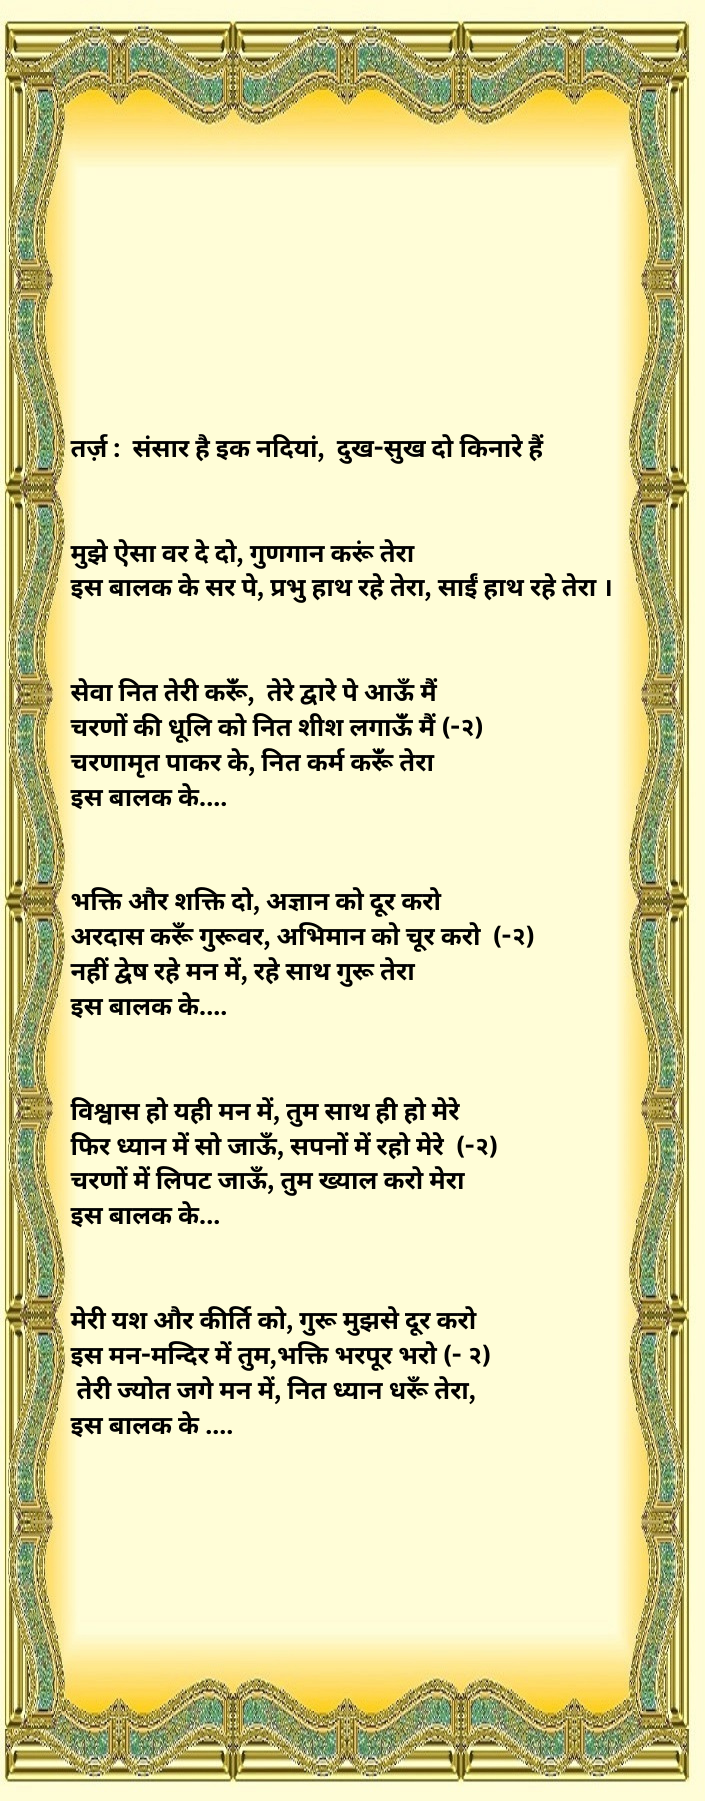 तर्ज़ :  संसार है इक नदियां,  दुख-सुख दो किनारे हैं
मुझे ऐसा वर दे दो, गुणगान करूं तेरा
इस बालक के सर पे, प्रभु हाथ रहे तेरा, साईं हाथ रहे तेरा ।
सेवा नित तेरी करूँ,  तेरे द्वारे पे आऊँ मैं
चरणों की धूलि को नित शीश लगाऊँ मैं (-२)
चरणामृत पाकर के, नित कर्म करूँ तेरा
इस बालक के....
भक्ति और शक्ति दो, अज्ञान को दूर करो
अरदास करूँ गुरूवर, अभिमान को चूर करो  (-२)
नहीं द्वेष रहे मन में, रहे साथ गुरू तेरा
इस बालक के....
विश्वास हो यही मन में, तुम साथ ही हो मेरे
फिर ध्यान में सो जाऊँ, सपनों में रहो मेरे  (-२)
चरणों में लिपट जाऊँ, तुम ख्याल करो मेरा
इस बालक के...
मेरी यश और कीर्ति को, गुरू मुझसे दूर करो
इस मन-मन्दिर में तुम,भक्ति भरपूर भरो (- २)
तेरी ज्योत जगे मन में, नित ध्यान धरूँ तेरा,
इस बालक के ....